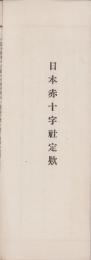 日本赤十字社定款